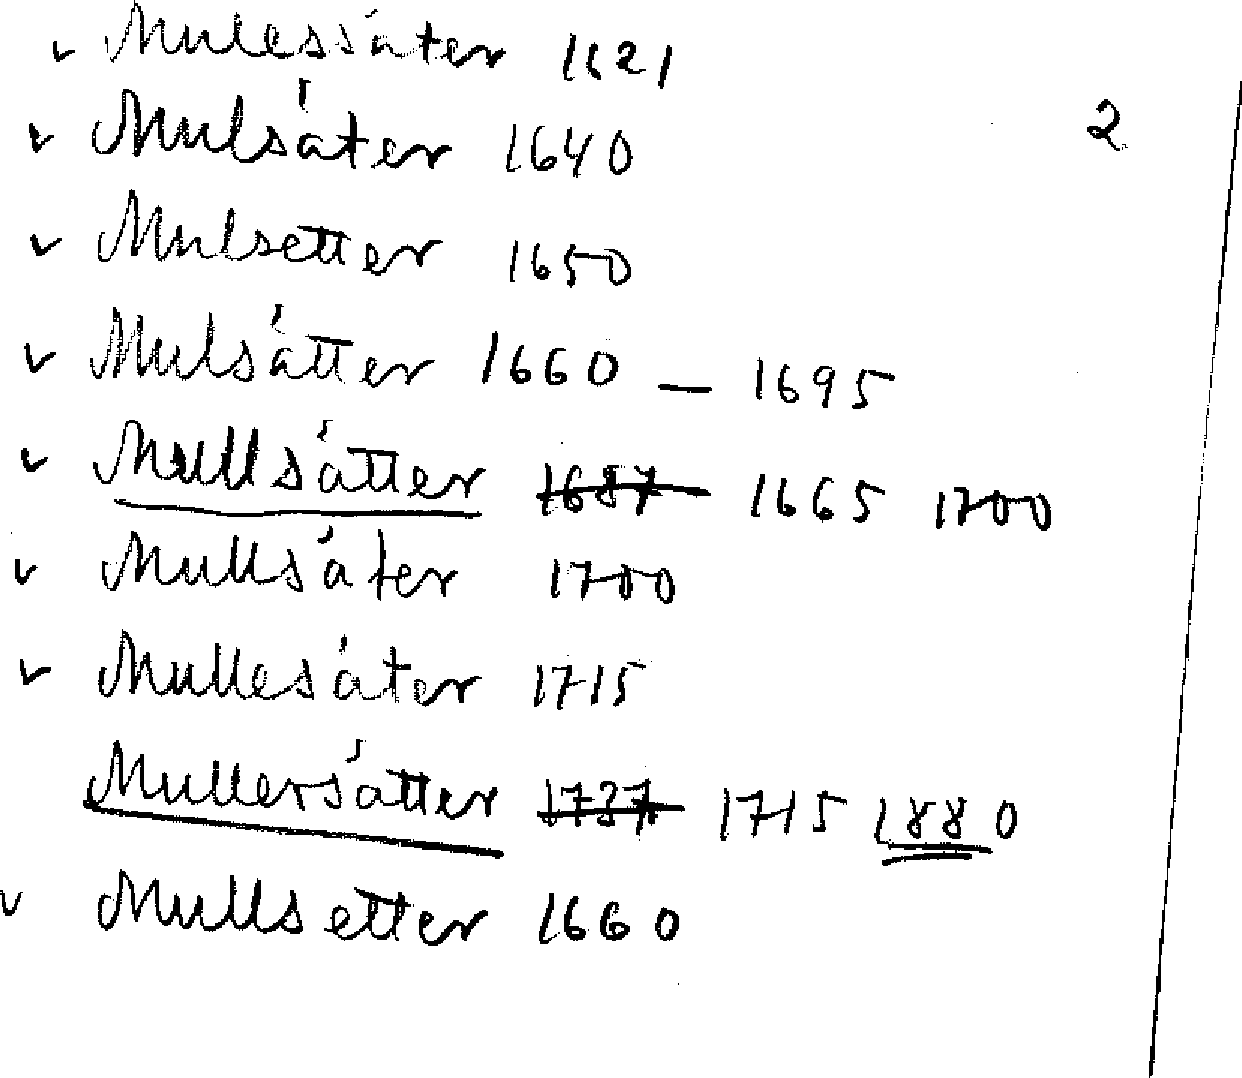 ✓ Mulessäter 1621
2
✓ Mulsäter 1640
✓ Mulsetter 1650
✓ Mulsätter 1660 – 1695
✓ Mullsätter 1687 1665 1700
✓ Mullsäter 1700
✓ Mullesäter 1715
Mullersätter 1737 1715 1880
✓ Mullsetter 1660